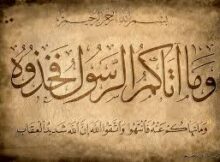 بسم الله الرحمن الرحيم
وما آتاكم الرسول فخذوه
وما نهاكم عنه فانتهوا واتقوا الله إن الله شديد العقاب